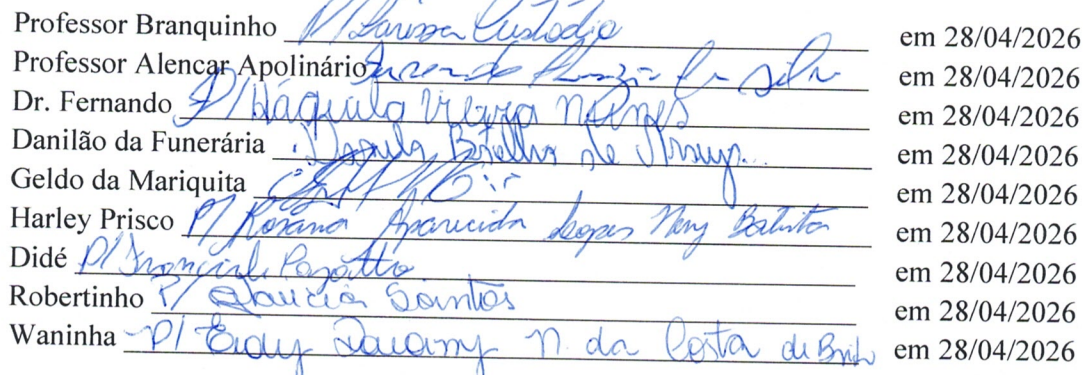 Professor Branquinho P/ Larissa Custódio em 28/04/2026
Professor Alencar Apolinário em 28/04/2026
Dr. Fernando P/ Náquila Vieira Nunes em 28/04/2026
Danilão da Funerária Botelho de em 28/04/2026
Geldo da Mariquita em 28/04/2026
Harley Prisco P/ Rosana Aparecida Lopes Nery Batista em 28/04/2026
Didé P/ em 28/04/2026
Robertinho P/ Santos em 28/04/2026
Waninha P/ N. da Costa de Brito em 28/04/2026